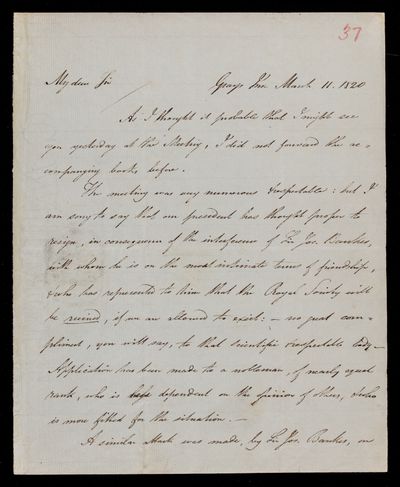 37
My dear Sir
Grays Inn March 11. 1820
As I thought it probable that I might see
you yesterday at the Meeting, I did not forward the ac-
companying books, before.
The meeting was very numerous & respectable: but I
am sorry to say that our president has thought proper to
resign, in consequence of the interference of Sir Jos. Bankes,
with whom he is on the most intimate terms of friendship,
& who has represented to him that the Royal Society will
be ruined, if we are allowed to exist: — no great com-
pliment, you will say, to that scientific & respectable body —
Application has been made to a nobleman, of nearly equal
rank, who is less dependent on the opinion of others, & who
is more fitted for the situation. —
A similar attack was made, by Sir Jos. Bankes, on